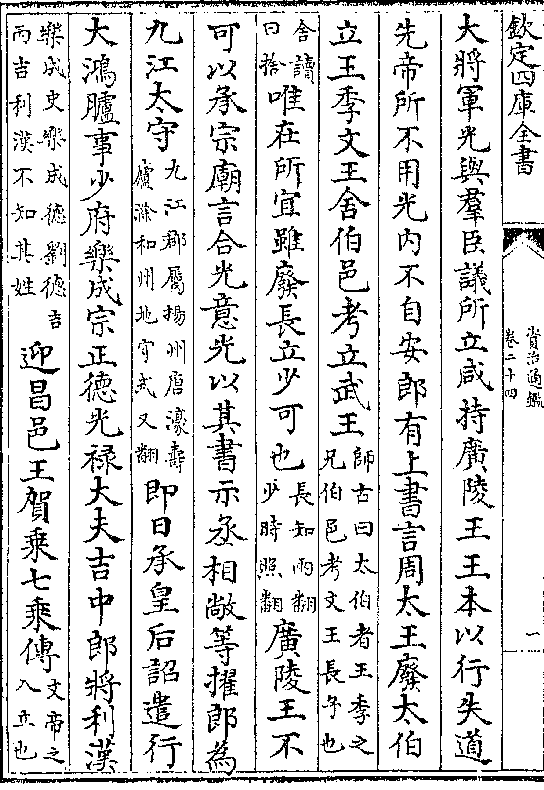 欽定四庫全書
資治通鑑
卷二十四
一
大將軍光與羣臣議所立咸持廣陵王王本以行失道
先帝所不用光内不自安郎有上書言周太王廢太伯
立王季文王舍伯邑考立武王師古曰太伯者王季之兄伯邑考文王長子也
舍讀曰捨唯在所宜雖廢長立少可也長知兩翻少時照翻廣陵王不
可以承宗廟言合光意光以其書示丞相敞等擢郎為
九江太守九江郡屬揚州唐濠壽廬滁和州地守式又翻即日承皇后詔遣行
大鴻臚事少府樂成宗正德光禄大夫吉中郎將利漢
樂成史樂成德劉德吉丙吉利漢不知其姓迎昌邑王賀乘七乘傳文帝之入立也